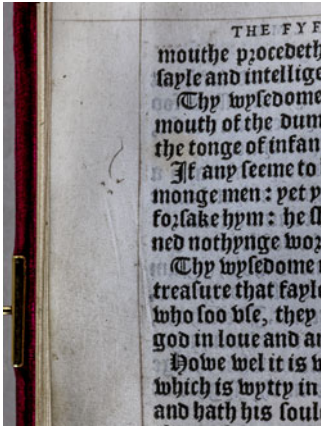 THE FYF
mouthe procedeth
sayle and intellige
Thy wysedome
mouth of the dum
the tonge of infan
If any seeme to
monge men: yet y
forsake hym: he sh
ned nothynge wor
Thy wysedome
treasure that fayle
who soo vse, they
god in loue and an
Howe wel it is
which is wytty in
and hath his soul